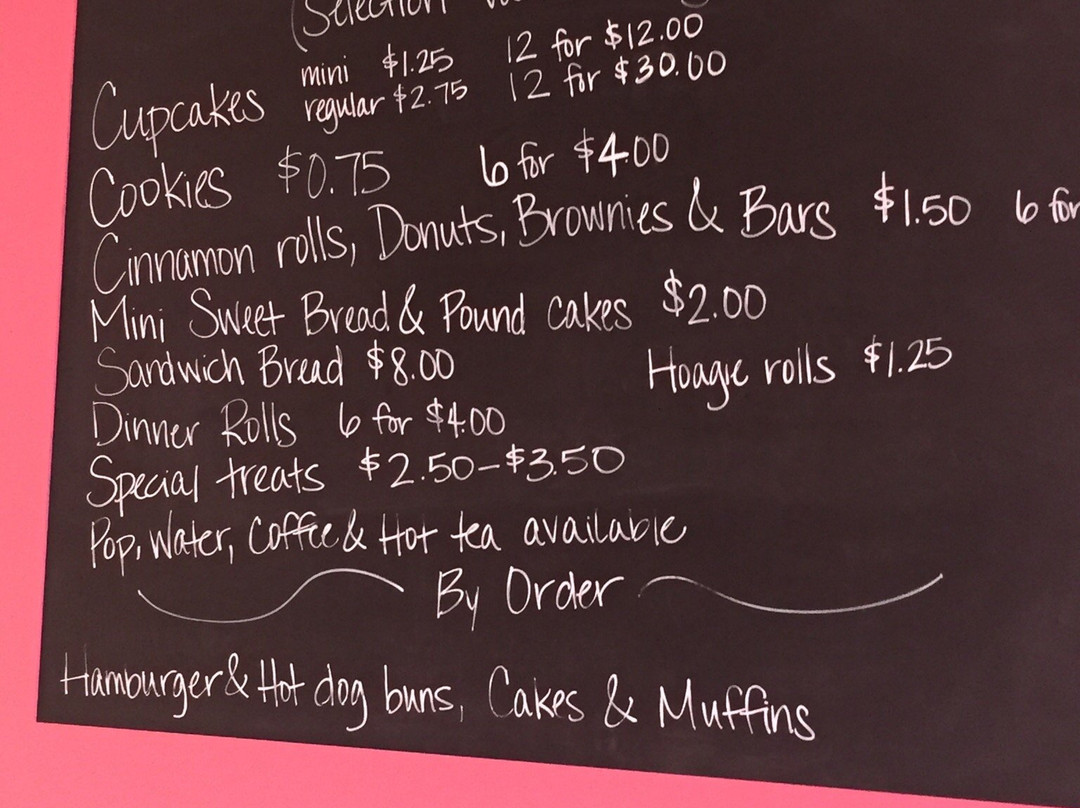 (Selection
mini $1.25 12 for $12.00
Cupcakes regular $2.75 12 for $30.00
Cookies $0.75 6 for $4.00
Cinnamon rolls, Donuts, Brownies & Bars $1.50 6 for
Mini Sweet Bread & Pound cakes $2.00
Sandwich Bread $8.00 Hoagie rolls $1.25
Dinner Rolls 6 for $4.00
Special treats $2.50-$3.50
Pop, Water, Coffee & Hot tea available
By Order
Hamburger & Hot dog buns, Cakes & Muffins